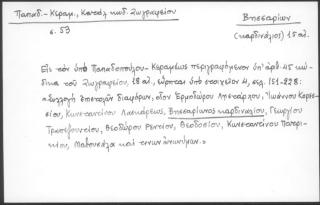 Παπαδ.-Κεραμ., Καταλ. κωδ. Ζωγραφείου
Βησσαρίων
σ. 53
(καρδινάλιος) 15 αἰ.
Εἰς τὸν ὑπὸ Παπαδοπούλου-Κεραμέως περιγραφόμενον ὑπ' ἀρθ. 45 κώ-
δικα τοῦ Ζωγραφείου, 18 αἰ., εὕρηται ὑπὸ στοιχεῖον 4, σελ. 151-228:
«Συλλογὴ ἐπιστολῶν διαφόρων, οἷον Ἑρμοδώρου Ληστάρχου, Ἰωάννου Καρυο-
, Κωνσταντίνου Λασκάρεως, Βησσαρίωνος καρδιναλίου, Γεωργίου
Τραπεζουντίου, Θεοδώρου Ρεντίου, Θεοδοσίου, Κωνσταντίνου Πατρι-
κίου, Ματουσάλα καὶ τινων ἀνωνύμων.»